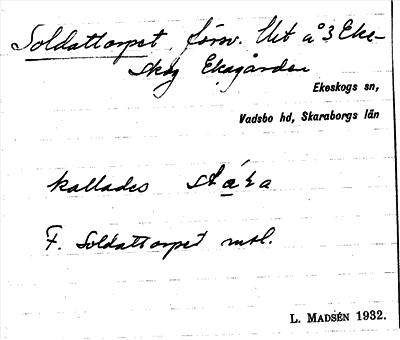 Soldattorpet, försv. Ut å 3 Eke-
skog Ekagården
Ekeskogs sn,
Vadsbo hd, Skaraborgs län
kallades
F. Soldattorpet
L. MADSÉN 1932.